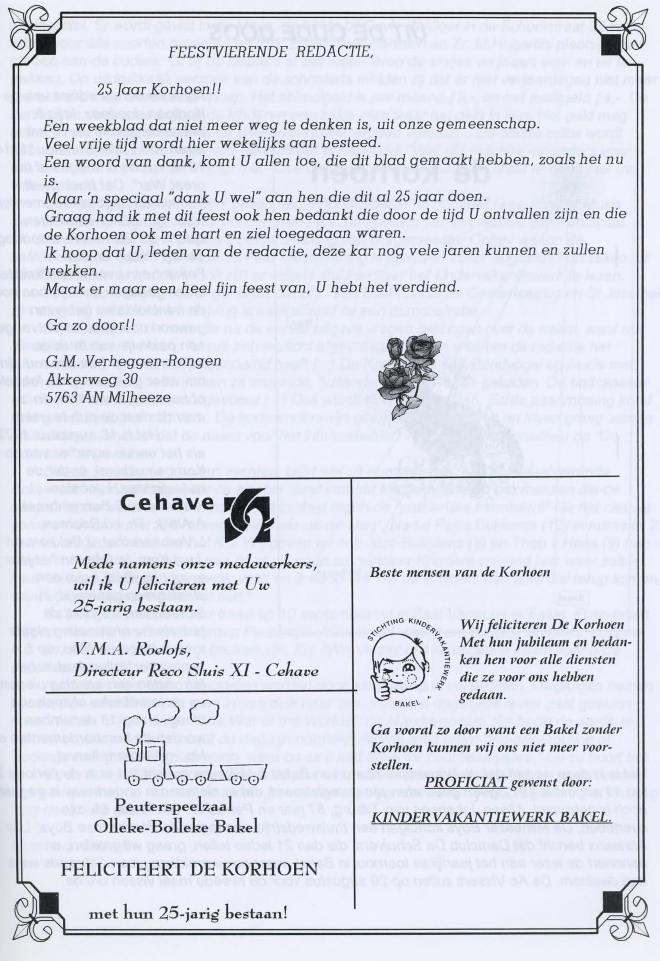 FEESTVIERENDE REDACTIE,
25 Jaar Korhoen!!
Een weekblad dat niet meer weg te denken is, uit onze gemeenschap.
Veel vrije tijd wordt hier wekelijks aan besteed.
Een woord van dank, komt U allen toe, die dit blad gemaakt hebben, zoals het nu
is.
Maar 'n speciaal "dank U wel" aan hen die dit al 25 jaar doen.
Graag had ik met dit feest ook hen bedankt die door de tijd U ontvallen zijn en die
de Korhoen ook met hart en ziel toegedaan waren.
Ik hoop dat U, leden van de redactie, deze kar nog vele jaren kunnen en zullen
trekken.
Maak er maar een heel fijn feest van, U hebt het verdiend.
Ga zo door!!
G.M. Verheggen-Rongen
Akkerweg 30
5763 AN Milheeze
Cehave
Mede namens onze medewerkers,
wil ik U feliciteren met Uw
25-jarig bestaan.
V.M.A. Roelofs,
Directeur Reco Sluis XI - Cehave
Peuterspeelzaal
Olleke-Bolleke Bakel
FELICITEERT DE KORHOEN
met hun 25-jarig bestaan!
Beste mensen van de Korhoen
STICHTING KINDERVAKANTIEWERK
BAKEL
Wij feliciteren De Korhoen
Met hun jubileum en bedan-
ken hen voor alle diensten
die ze voor ons hebben
gedaan.
Ga vooral zo door want een Bakel zonder
Korhoen kunnen wij ons niet meer voor-
stellen.
PROFICIAT gewenst door:
KINDERVAKANTIEWERK BAKEL.